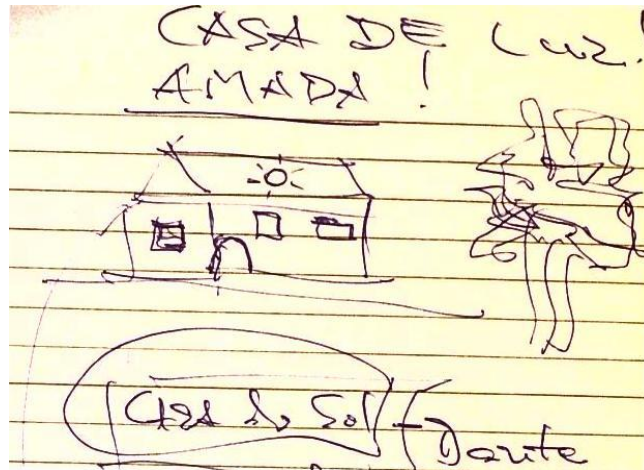 CASA DE LUZ!
AMADA!
Casa do Sol
Dante